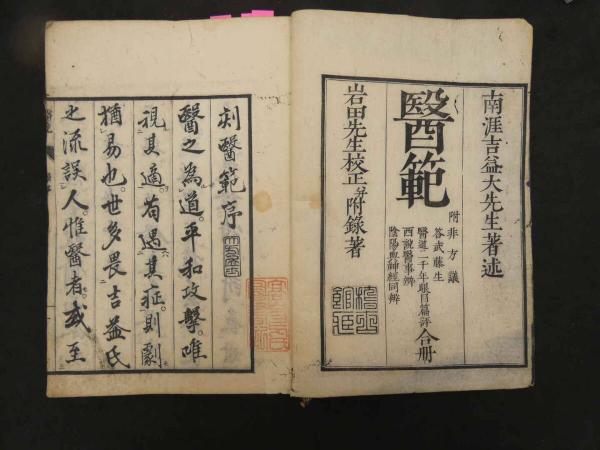 南涯吉益大先生著述
醫範
附非方議
答武藤生
醫道二千年眼目篇評
西說醫事辨
陰陽與神經同辨
合冊
岩田先生校正并附錄著
刻醫範序
醫之為道。平和攻擊。唯
視其適。苟遇其症。則劇
猶易也。世多畏吉益氏
之流誤人。惟醫者。或至